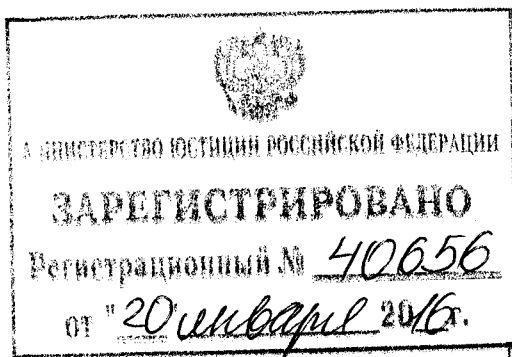 МИНИСТЕРСТВО ЮСТИЦИИ РОССИЙСКОЙ ФЕДЕРАЦИИ
ЗАРЕГИСТРИРОВАНО
Регистрационный № 40656
от "20 января 2016г.